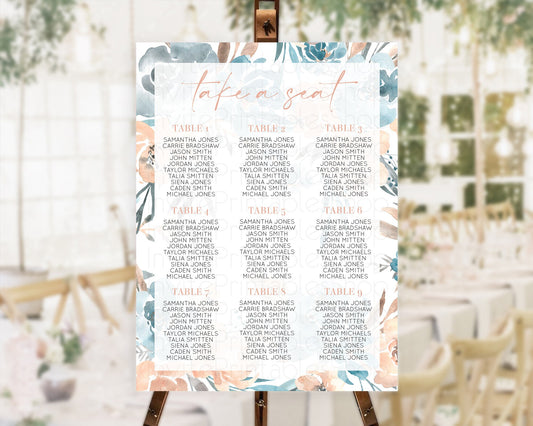 take a seat
TABLE 1
SAMANTHA JONES
CARRIE BRADSHAW
JASON SMITH
JOHN MITTEN
JORDAN JONES
TAYLOR MICHAELS
TALIA SMITTEN
SIENA JONES
CADEN SMITH
MICHAEL JONES
TABLE 2
SAMANTHA JONES
CARRIE BRADSHAW
JASON SMITH
JOHN MITTEN
JORDAN JONES
TAYLOR MICHAELS
TALIA SMITTEN
SIENA JONES
CADEN SMITH
MICHAEL JONES
TABLE 3
SAMANTHA JONES
CARRIE BRADSHAW
JASON SMITH
JOHN MITTEN
JORDAN JONES
TAYLOR MICHAELS
TALIA SMITTEN
SIENA JONES
CADEN SMITH
MICHAEL JONES
TABLE 4
SAMANTHA JONES
CARRIE BRADSHAW
JASON SMITH
JOHN MITTEN
JORDAN JONES
TAYLOR MICHAELS
TALIA SMITTEN
SIENA JONES
CADEN SMITH
MICHAEL JONES
TABLE 5
SAMANTHA JONES
CARRIE BRADSHAW
JASON SMITH
JOHN MITTEN
JORDAN JONES
TAYLOR MICHAELS
TALIA SMITTEN
SIENA JONES
CADEN SMITH
MICHAEL JONES
TABLE 6
SAMANTHA JONES
CARRIE BRADSHAW
JASON SMITH
JOHN MITTEN
JORDAN JONES
TAYLOR MICHAELS
TALIA SMITTEN
SIENA JONES
CADEN SMITH
MICHAEL JONES
TABLE 7
SAMANTHA JONES
CARRIE BRADSHAW
JASON SMITH
JOHN MITTEN
JORDAN JONES
TAYLOR MICHAELS
TALIA SMITTEN
SIENA JONES
CADEN SMITH
MICHAEL JONES
TABLE 8
SAMANTHA JONES
CARRIE BRADSHAW
JASON SMITH
JOHN MITTEN
JORDAN JONES
TAYLOR MICHAELS
TALIA SMITTEN
SIENA JONES
CADEN SMITH
MICHAEL JONES
TABLE 9
SAMANTHA JONES
CARRIE BRADSHAW
JASON SMITH
JOHN MITTEN
JORDAN JONES
TAYLOR MICHAELS
TALIA SMITTEN
SIENA JONES
CADEN SMITH
MICHAEL JONES